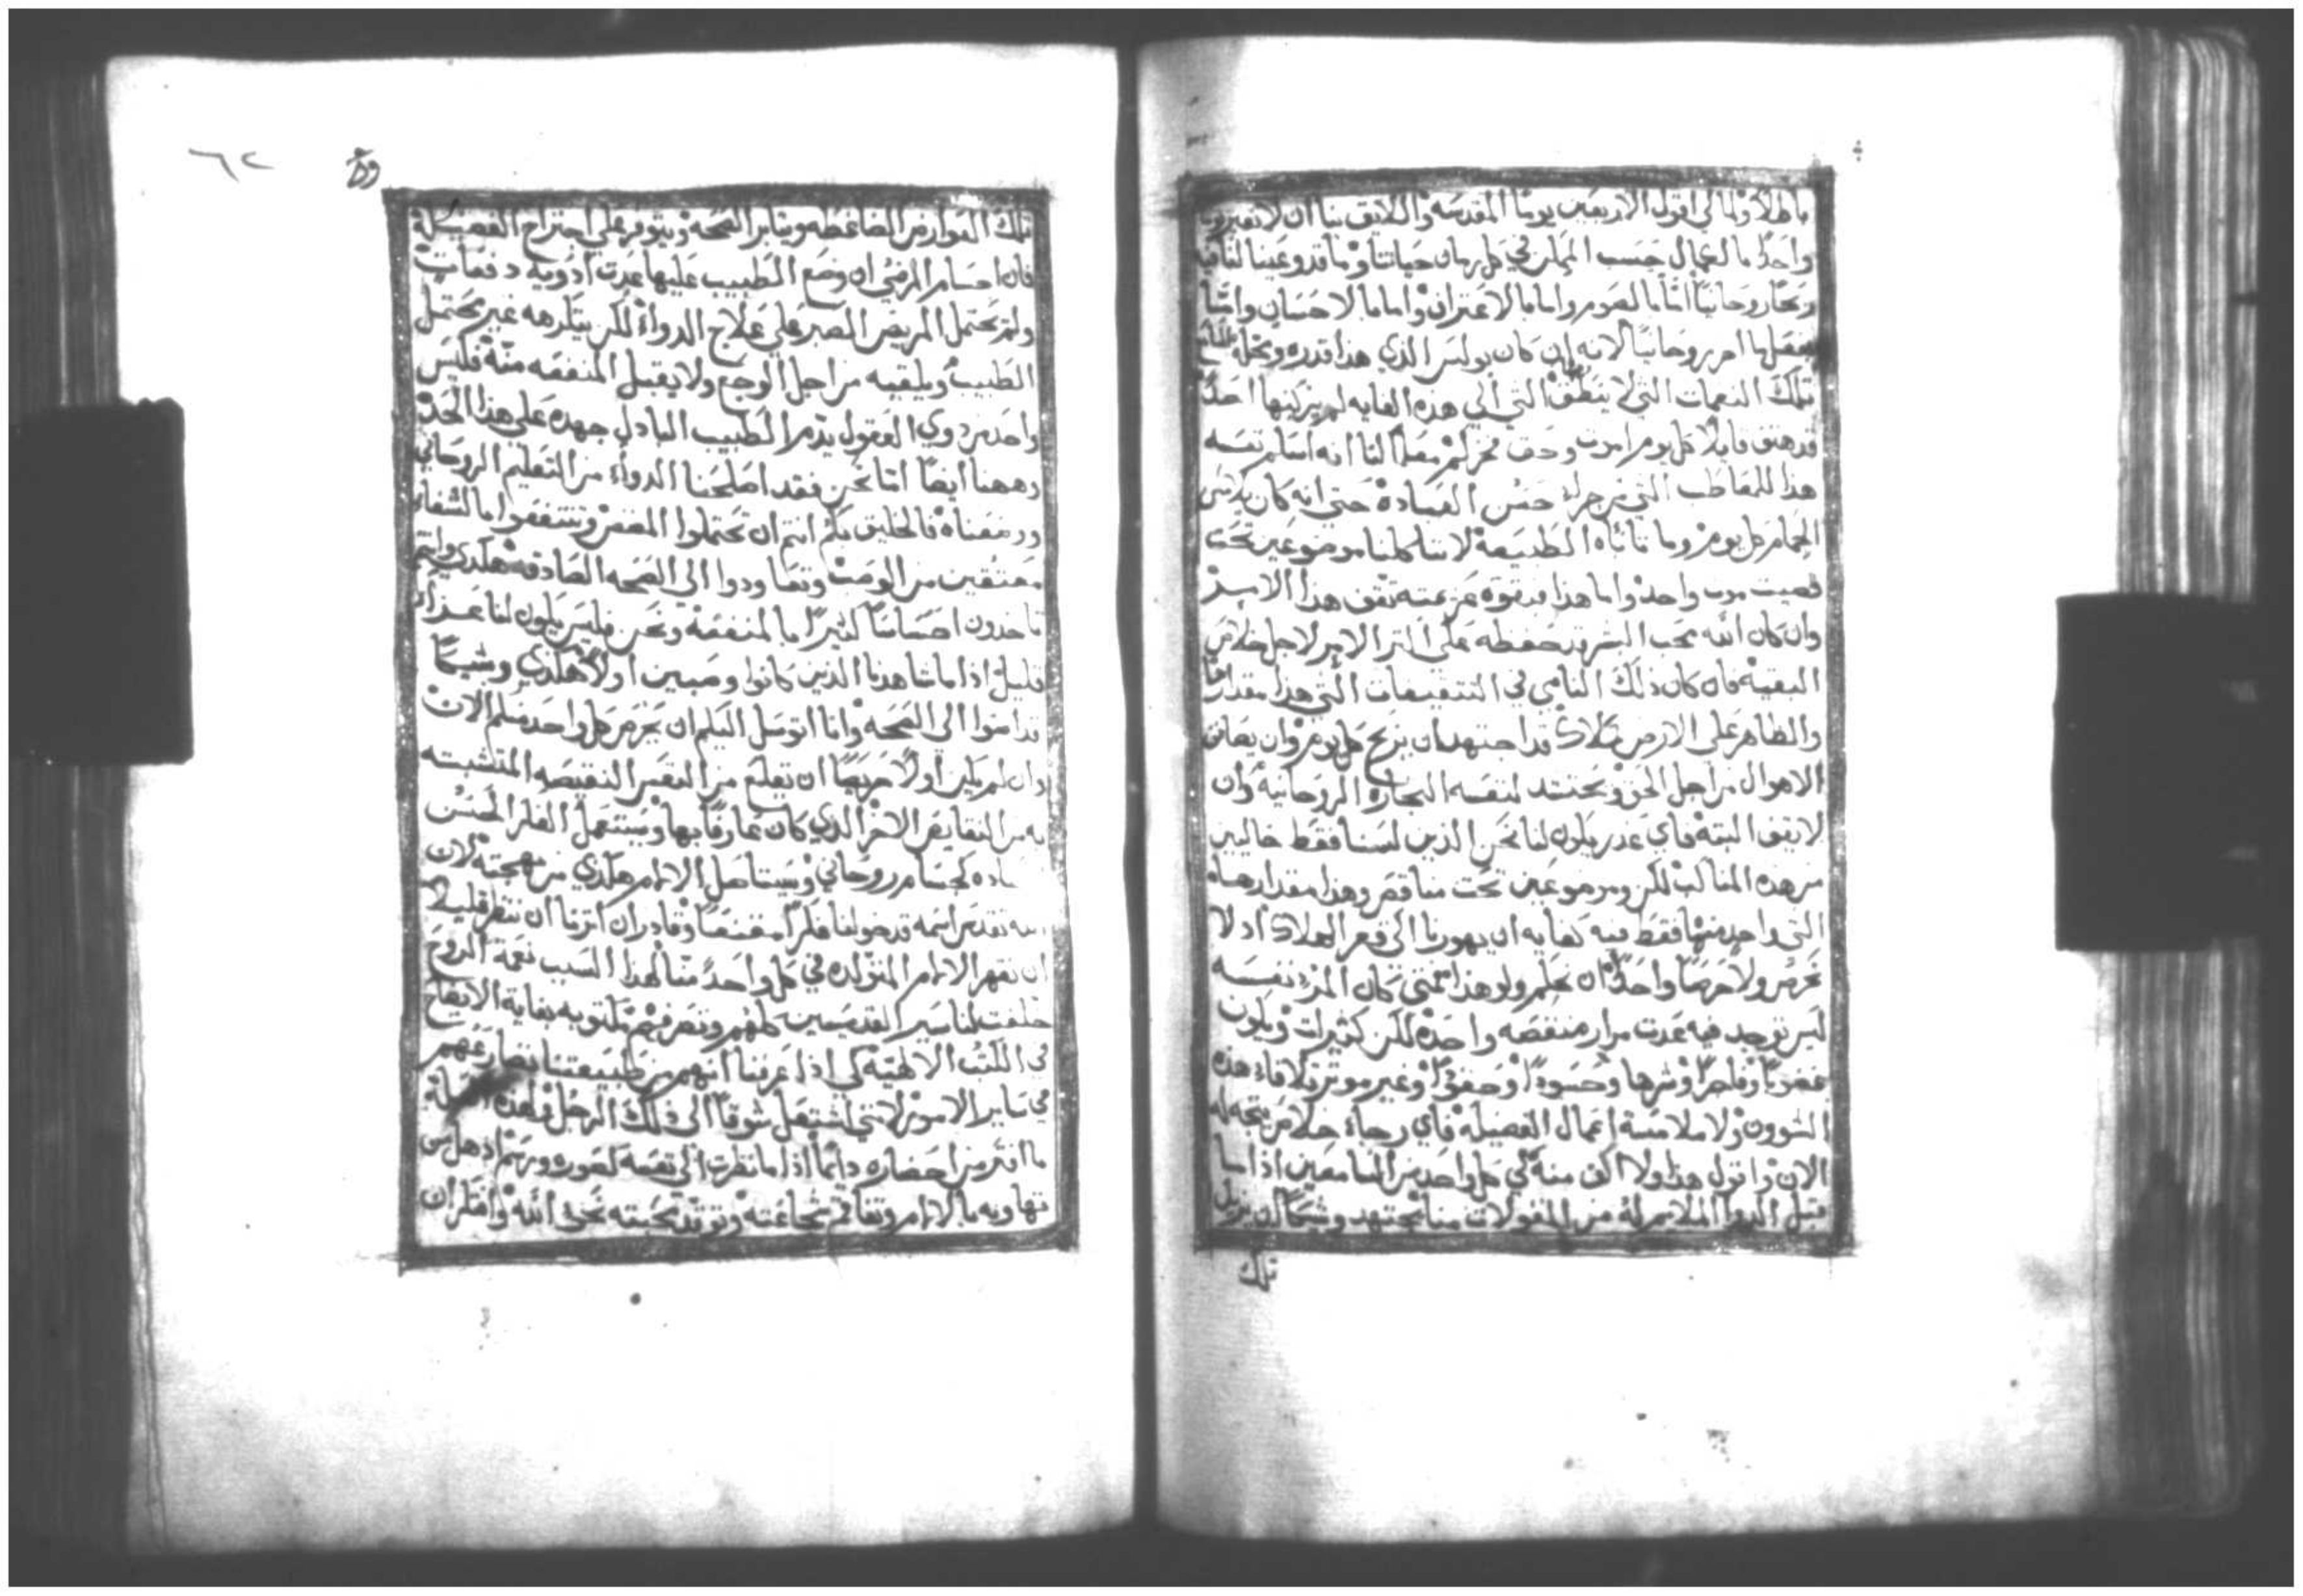 باطلاً ولمالي اقول الاربعين يومًا المقدسه واللايق بنا ان لا نعبر يوم
واحدًا بالعمال حسب الممكن في كل زمان حياتنا وما قد وعينا لنا فيه
ربحًا روحانيًا اما بالصوم واما بالاعتراف واما بالاحسان واما
بفعل ما امر روحانيًا لانه ان كان بولس الذي هذا قدره ومحله
تلك النعمات التي لا ينطق التي الي هذه الغايه لم يزكيها احد
قد هتف قايلا كل يوم اموت وحق فخركم معلمًا لنا انه اسلم نفسه
هذا للمعاطب التي من جراء حسن العباده حتى انه كان يلامس
الحمام كل يوم وما تاباه الطبيعة لاننا كلنا موضوعين تحت
قصيت موت واحد واما هذا فبقوة عزيمته تقف هذا الامير
وان كان الله محب البشر قد حفظه على اكثر الامر لاجل خلاص
البقية فان كان ذلك النامي في التثقيفات التي هذا مقدارها
والظاهر على الارض كملاك قد اجتهد بان يربح كل يوم وان يصاف
الاهوال من اجل الحق ويحتشد لنفسه التجاره الروحانيه وان
لا يقف البتة فاي عذر يكون لنا نحن الذين لسنا فقط خاليين
من هذه المناقب لكن وموضوعين تحت مناقص وهذا مقدارها
التي واحده منها فقط فيه كفايه ان يهورنا الى قعر الهلاك اذ لا
نحرص ولا حرصًا واحدًا ان نحلم ولو هذا متى كان المرء نفسه
ليس توجد فيه عدت مرار منقصه واحده لكن كثيرات ويكون
غضوبًا وفاجرًا وشرها وحسودًا وحقودًا وغير موثر تلافاء هذه
الشوون ولا ملامسة اعمال الفضيله فاي رجاء خلاص يتجه له
الان واقول هذا ولا اكف منه لكي كل واحد من السامعين اذا ما
قبل الدوا الملايم له من المقولات منا يجتهد وشيكًا ان يزيل
تلك
٦٢
تلك العوارض الضاغطه ويثابر الصحه ويتوفر على اجتراح الفضيلة
فان اجسام المرضى ان وضع الطبيب عليها عدت ادويه دفعات
ولم يحتمل المريض الصبر على علاج الدواء لكن يتكرهه غير محتمل
الطبيب ويلقيه من اجل الوجع ولا يقبل المنفعه منه فليس
واحد من ذوي العقول يذم الطبيب الباذل جهده على هذا الحد
وههنا ايضًا اما نحن فقد اصلحنا الدواء من التعليم الروحاني
ووضعناه فالخليق بكم انتم ان تحتملوا المضض وتنتفعوا بالشفاء
معتقين من الوصب وتعاودوا الي الصحه الصادقة هكذي وانتم
تاخدون احساسًا كثيرًا بالمنفعة ونحن فليس يكون لنا عزاء
قليل اذا ما شاهدنا الذين كانوا وصبين اولا هكذي وشيكًا
قد امنوا الى الصحه وانا اتوسل اليكم ان يحرص كل واحد منكم الان
وان لم يكن اولًا حريصًا ان يقلع من النفس النقيصه المتشبثه
به من النقايص الاخر الذي كان عارفًا بها ويستعمل الفكر الحسن
كحسام روحاني ويستاصل الالام هكذي من مهجته لان
الله تقدس اسمه قد خولنا فكرًا مقنعًا وقادر ان اثرنا ان ننظر قليلا
ان نقهر الالام المتولده في كل واحد منا لهذا السبب نعمة الروح
خلفت لنا سير القديسين كلهم وتصرفهم مكتوبه بغاية الايضاح
في الكتب الالهية كي اذا عرفنا انهم من طبيعتنا نضارعهم
في ساير الامور لانني اشتعل شوقًا الى ذلك الرجل
ما افتر من احضاره دايمًا اذا ما نظرت الى نفسه كصوره ورسم اذهل من
تهاونه بالالام وتفاقم شجاعته وتوقد محبته نحو الله وافكر ان